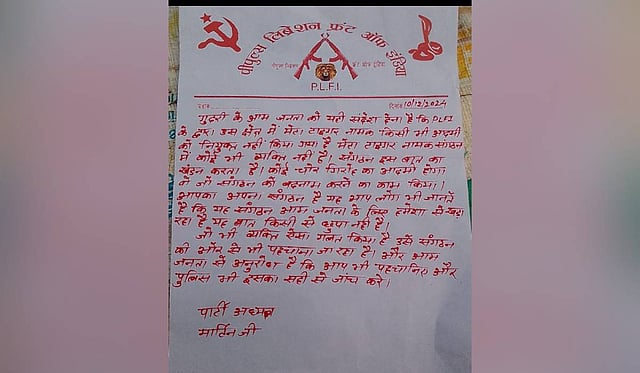 पीपुल्स लिब्रेशन फ्रंट ऑफ इंडिया
P.L.F.I.
दिनांक 10/12/2024
गुदड़ी के आम जनता को यही संदेश देना है कि PLFI
के द्वारा उस क्षेत्र में मेटा टाइगर नामक किसी भी आदमी
को नियुक्त नहीं किया गया है मेटा टाइगर नामक संगठन
में कोई भी व्यक्ति नहीं है। संगठन इस बात का
खंडन करता है। कोई चोर गिरोह का आदमी होगा
वे जो संगठन को बदनाम करने का काम किया।
आपका अपना संगठन है यह आप लोग भी जानते
है कि यह संगठन आम जनता के लिए हमेशा से खड़ा
रहा है यह बात किसी से छुपा नहीं है।
जो भी व्यक्ति ऐसा गलत किया है उसे संगठन
की ओर से भी पहचाना जा रहा है। और आम
जनता से अनुरोध है कि आप भी पहचानिए और
पुलिस भी इसका सही से जांच करे।
पार्टी अध्यक्ष
मार्टिन जी